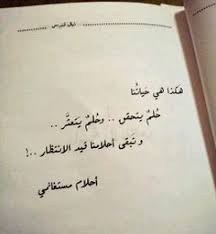 نبال قندس
هكذا هي حياتُنا
حُلمٌ يتحقق .. وحُلمٌ يتعثَّر ..
و تبقى أحلامنا قيد الانتظار ..!
أحلام مستغانمي